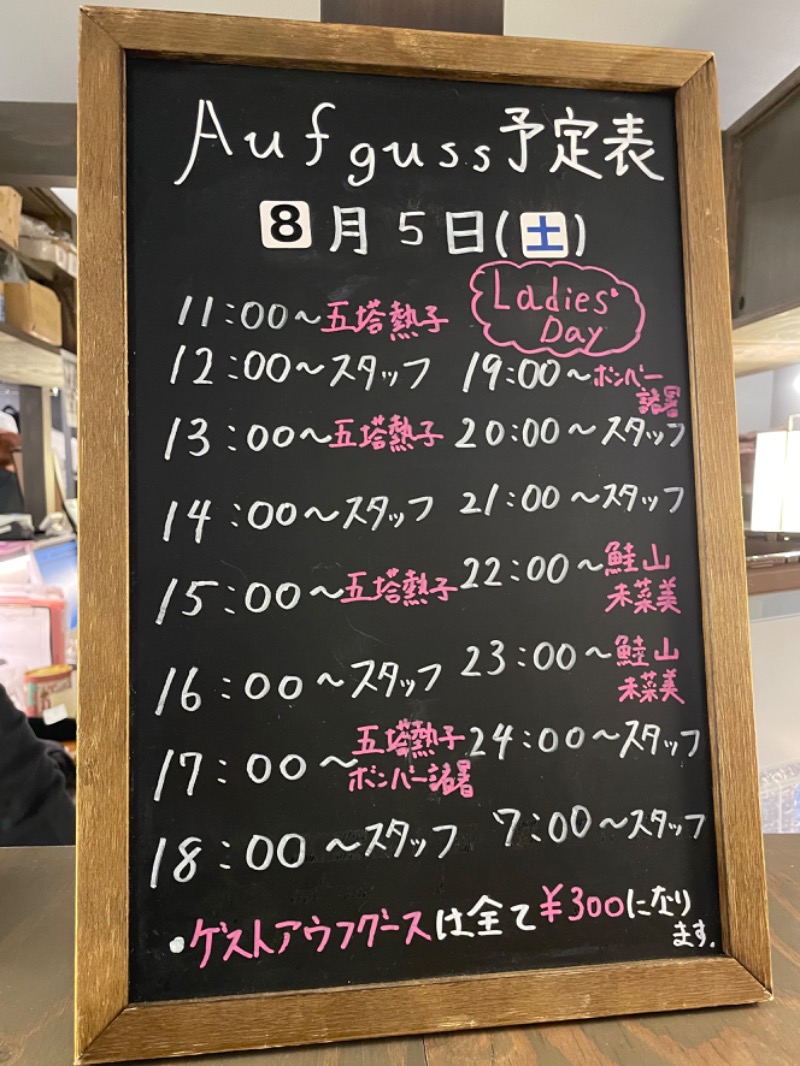 Aufguss予定表
8月5日(土)
Ladies' Day
11:00～五塔熱子
12:00～スタッフ
13:00～五塔熱子
14:00～スタッフ
15:00～五塔熱子
16:00～スタッフ
17:00～五塔熱子
ボンバー諸暑
18:00～スタッフ
19:00～ボンバー
諸暑
20:00～スタッフ
21:00～スタッフ
22:00～鮭山
未菜美
23:00～鮭山
未菜美
24:00～スタッフ
7:00～スタッフ
・ゲストアウフグースは全て¥300になり
ます.